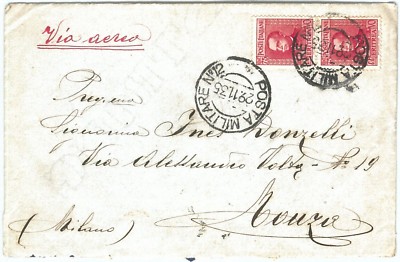 Via aerea
POSTE ITALIANE
POSTA MILITARE N° 12
29.11.35
POSTA MILITARE
Signorina Ines Donzelli
Via Alessandro Volta - N° 19
Monza
(Milano)